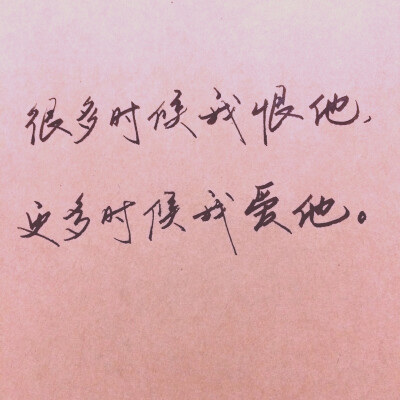 很多时候我恨他,
更多时候我爱他。